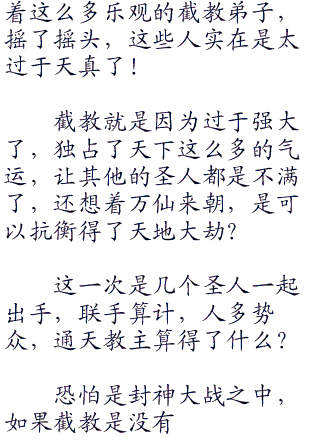 着这么多乐观的截教弟子，
摇了摇头，这些人实在是太
过于天真了！
截教就是因为过于强大
了，独占了天下这么多的气
运，让其他的圣人都是不满
了，还想着万仙来朝，是可
以抗衡得了天地大劫？
这一次是几个圣人一起
出手，联手算计，人多势
众，通天教主算得了什么？
恐怕是封神大战之中，
如果截教是没有